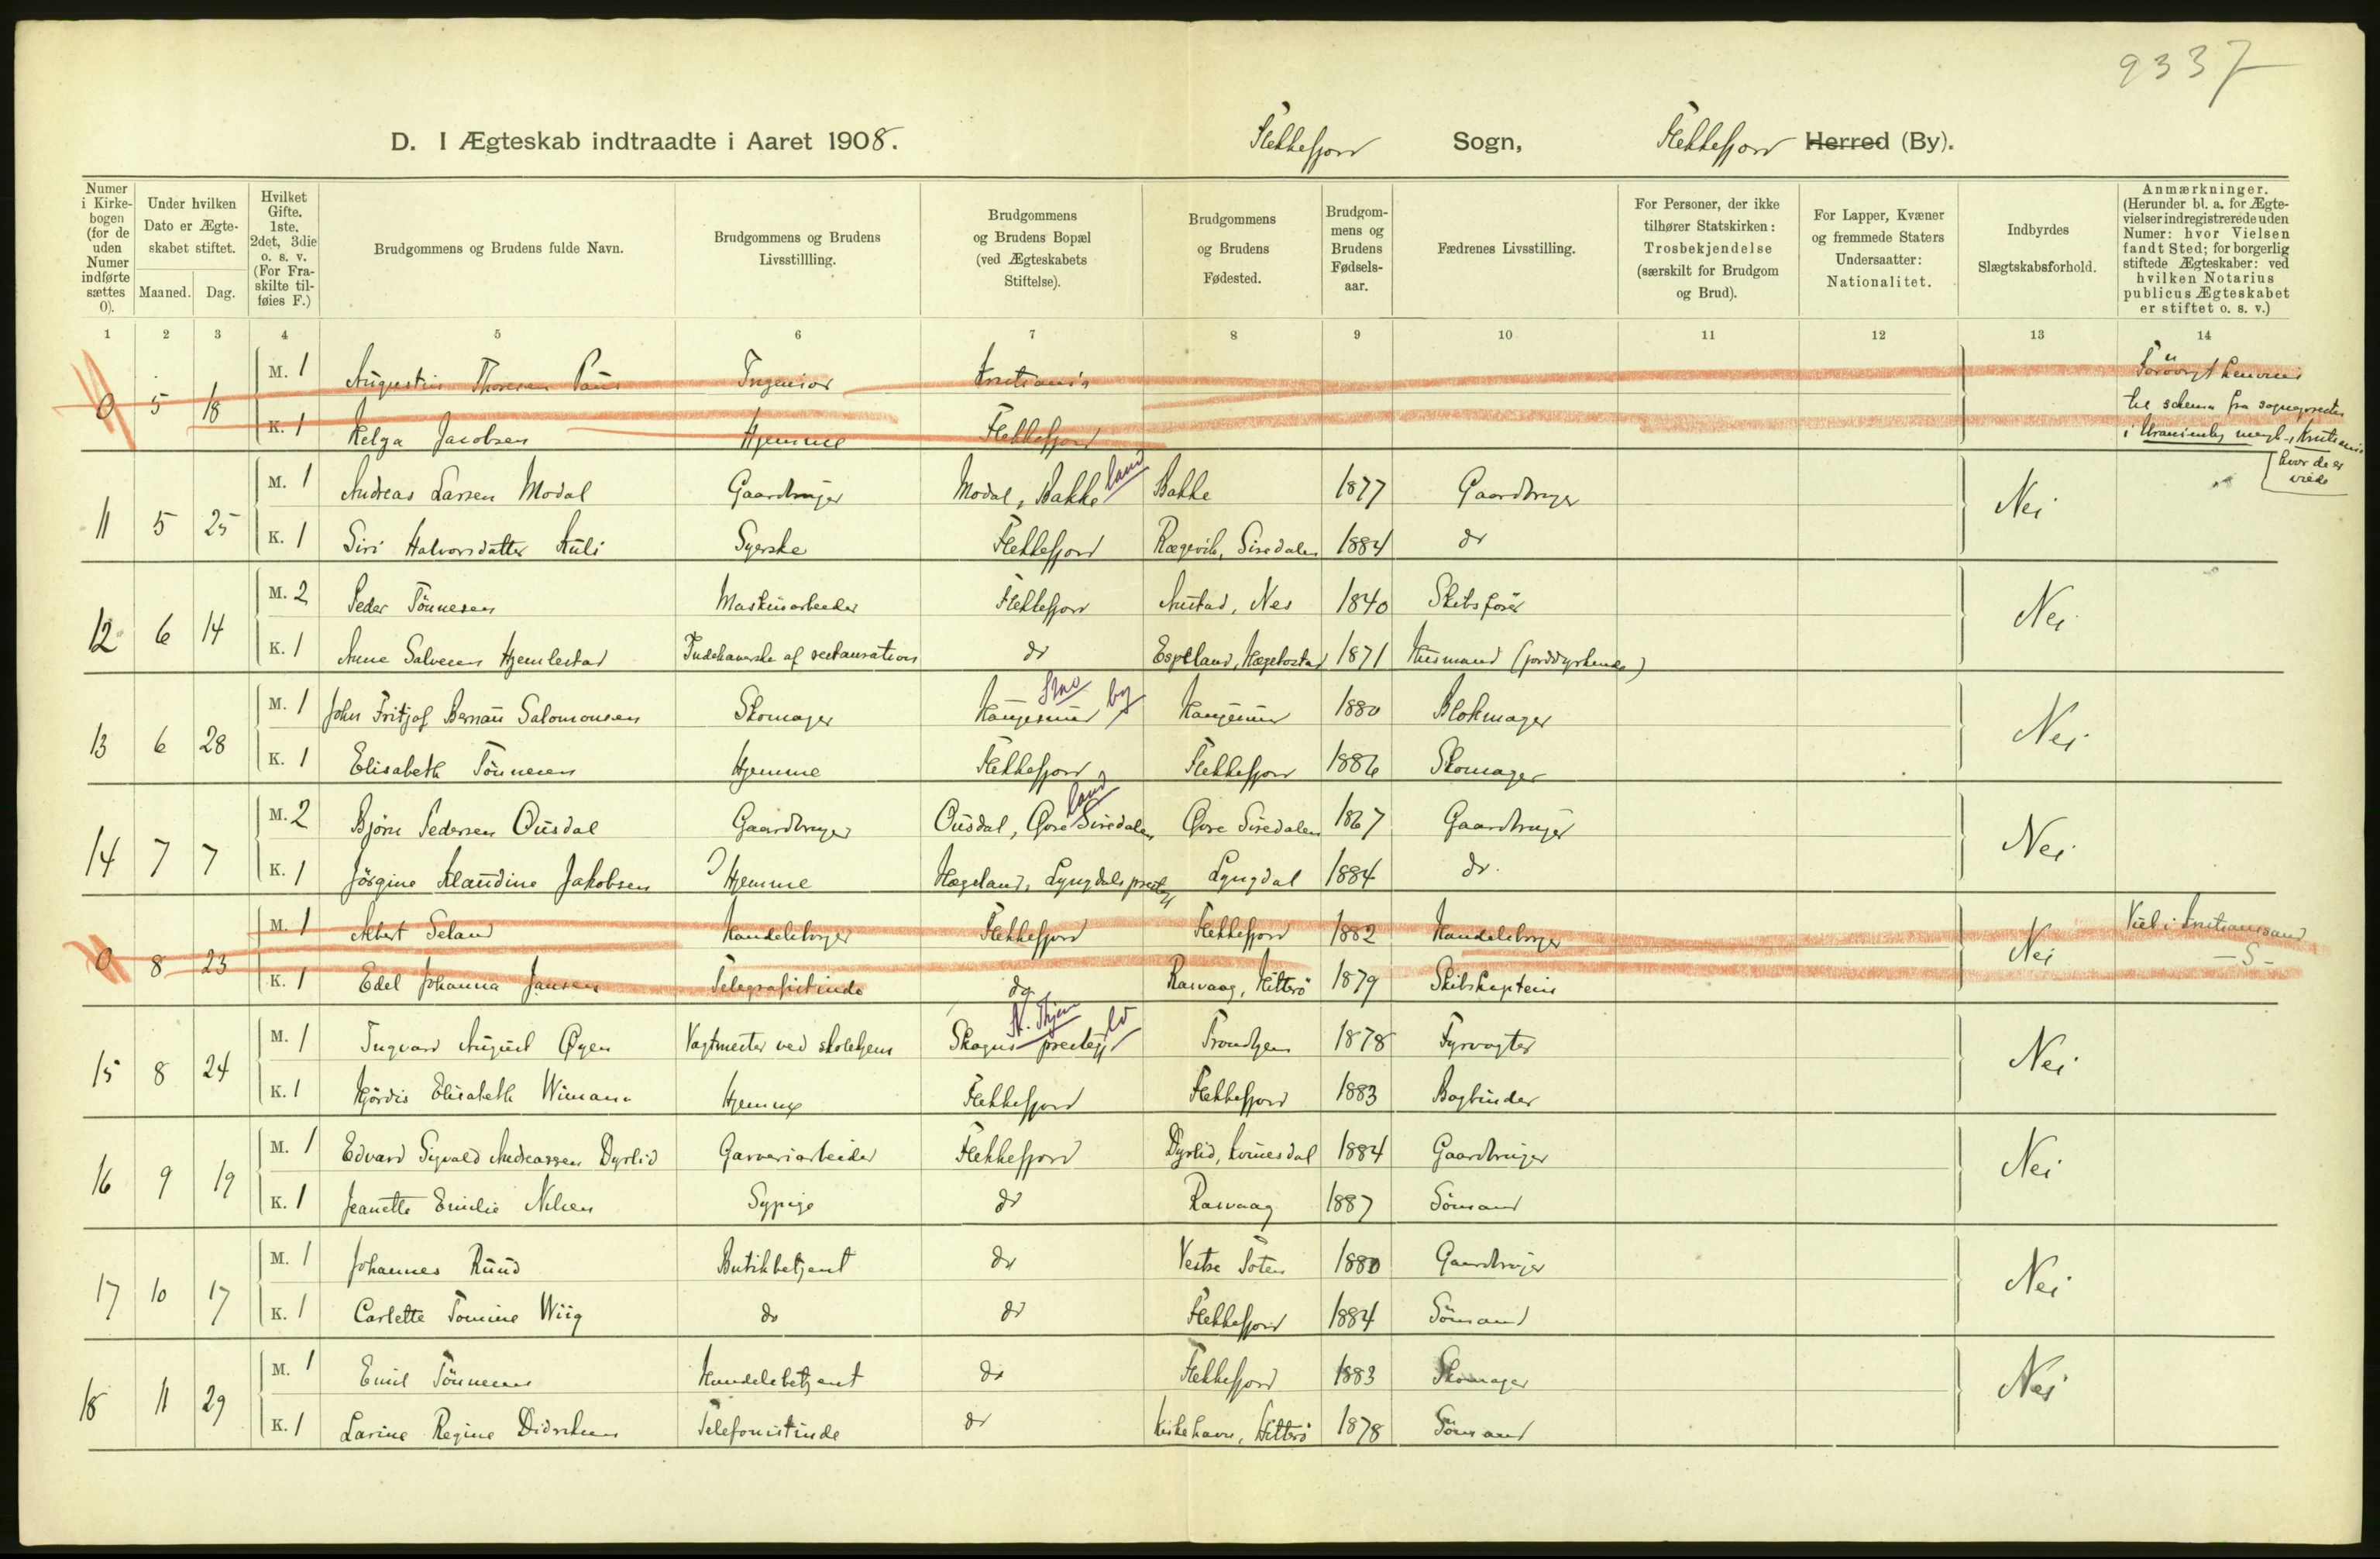 9337
D. I Ægteskab indtraadte i Aaret 1908. Flekkefjord Sogn, Flekkefjord Herred (By).
Numer i Kirke-bogen (for de uden Numer indførte sættes 0).
Under hvilken Dato er Ægte-skabet stiftet.
Maaned. Dag.
Hvilket Gifte. 1ste. 2det, 3die o. s. v. (For Fra-skilte til-føies F.)
Brudgommens og Brudens fulde Navn.
Brudgommens og Brudens Livsstillling.
Brudgommens og Brudens Bopæl (ved Ægteskabets Stiftelse).
Brudgommens og Brudens Fødested.
Brudgom-mens og Brudens Fødsels-aar.
Fædrenes Livsstilling.
For Personer, der ikke tilhører Statskirken: Trosbekjendelse (særskilt for Brudgom og Brud).
For Lapper, Kvæner og fremmede Staters Undersaatter: Nationalitet.
Indbyrdes Slægtskabsforhold.
Anmærkninger. (Herunder bl. a. for Ægte-vielser indregistrerede uden Numer: hvor Vielsen fandt Sted; for borgerlig stiftede Ægteskaber: ved hvilken Notarius publicus Ægteskabet er stiftet o. s. v.)
1 2 3 4 5 6 7 8 9 10 11 12 13 14
0 5 18 M. 1 Augustin Thoresen Paus Ingeniør Kristiania Forøvrigt henvises
til schema fra sognepresten
K. 1 Helga Jacobsen Hjemme Flekkefjord i Uranienborg mengh., Kristiania
hvor de er
viede
11 5 25 M. 1 Andreas Larsen Modal Gaardbruger Modal, Bakke land Bakke 1877 Gaardbruger Nei
K. 1 Siri Halvorsdatter Kuli Syerske Flekkefjord Rægevik, Siredalen 1884 do
12 6 14 M. 2 Peder Tönnesen Maskinarbeider Flekkefjord Austad, Nes 1840 Skibsförer Nei
K. 1 Anne Salvesen Hjemlestad Indehaverske af restauration do Espeland, Hægebostad 1871 Husmand (jorddyrkende)
13 6 28 M. 1 John Fritjof Bernau Salomonsen Skomager Haugesund by Haugesund 1880 Blokmager Nei
K. 1 Elisabeth Tönnesen Hjemme Flekkefjord Flekkefjord 1886 Skomager
14 7 7 M. 2 Bjørn Pedersen Ousdal Gaardbruger Ousdal, Øvre Siredalen land Øvre Siredalen 1867 Gaardbruger Nei
K. 1 Jörgine Klaudine Jakobsen Hjemme Hægeland, Lyngdals prestegj Lyngdal 1884 do.
0 8 23 M. 1 Albert Seland Handelsborger Flekkefjord Flekkefjord 1882 Handelsborger Nei Viet i Kristianssand
K. 1 Edel Johanna Jansen Telegrafistinde do Rasvaag, Hitterö 1879 Skibskaptein — S —
15 8 24 M. 1 Ingvard August Øyen Vagtmester ved skolehjem Skogns prestegj N. Thjem ld Trondhjem 1878 Fyrvogter Nei
K. 1 Hjördis Elisabeth Wimann Hjemme Flekkefjord Flekkefjord 1883 Bogbinder
16 9 19 M. 1 Edvard Sigvald Andreassen Dyrlid Garveriarbeider Flekkefjord Dyrlid, Kvinesdal 1884 Gaardbruger Nei
K. 1 Jeanette Emilie Nilsen Sypige do Rasvaag 1887 Sömand
17 10 17 M. 1 Johannes Ruud Butikbetjent do Vestre Toten 1880 Gaardbruger Nei
K. 1 Carlette Tomine Wiig do do Flekkefjord 1884 Sömand
18 11 29 M. 1 Emil Tönnesen Handelsbetjent do Flekkefjord 1883 Skomager Nei
K. 1 Larine Regine Didriksen Telefonistinde do Kirkehavn, Hitterö 1878 Sömand